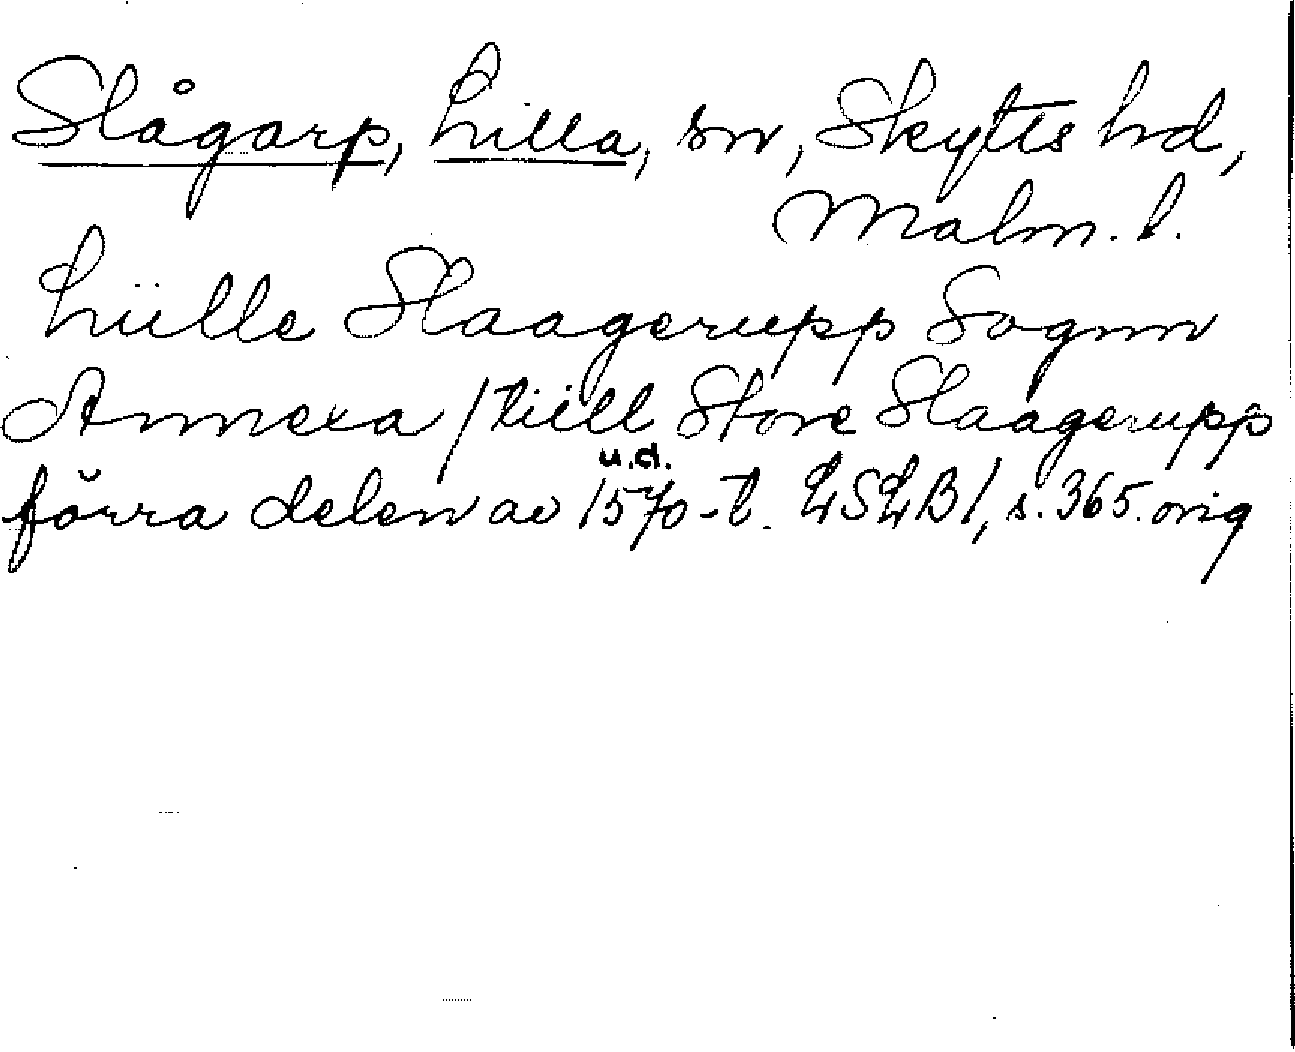 Slågarp, Lilla, sn, Skytts hd,
Malm. l.
Lülle Slaagerupp Sognn
Annexa / tüll Store Slaagerupp
u.d.
förra delen av 1570-t. LSLB1, s. 365. orig